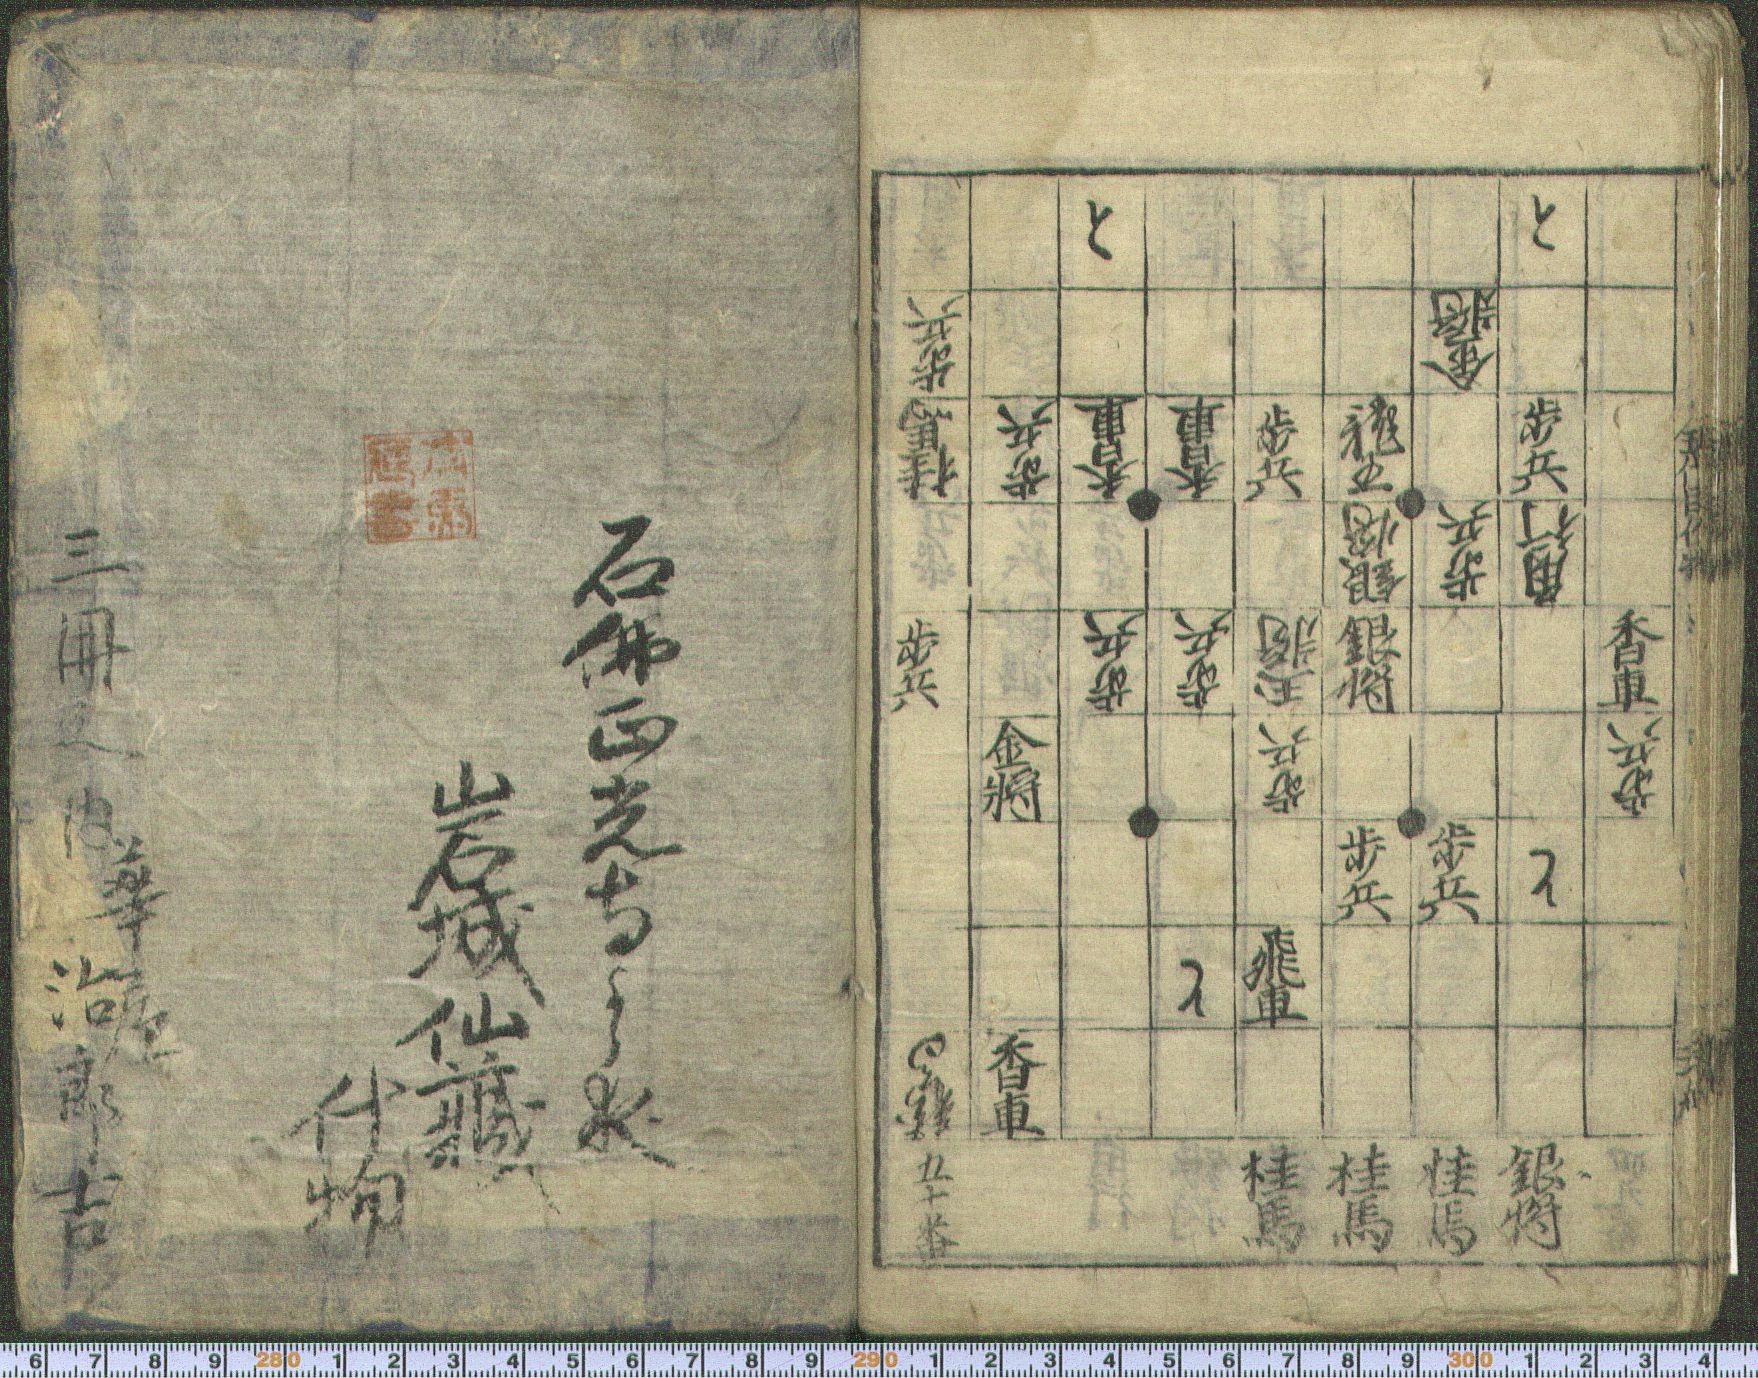 石佛正光寺
岩城仙藏
什物
三冊之内
治郎吉
と と
歩兵 金將
桂馬 歩兵 香車 香車 歩兵 龍王 歩兵
銀將 歩兵 角行
歩兵 歩兵 歩兵 玉將 銀將 香車
金將 歩兵 歩兵
歩兵 歩兵 と
と 飛車
香車
五十番 桂馬 桂馬 桂馬 銀將
6 7 8 9 280 1 2 3 4 5 6 7 8 9 290 1 2 3 4 5 6 7 8 9 300 1 2 3 4